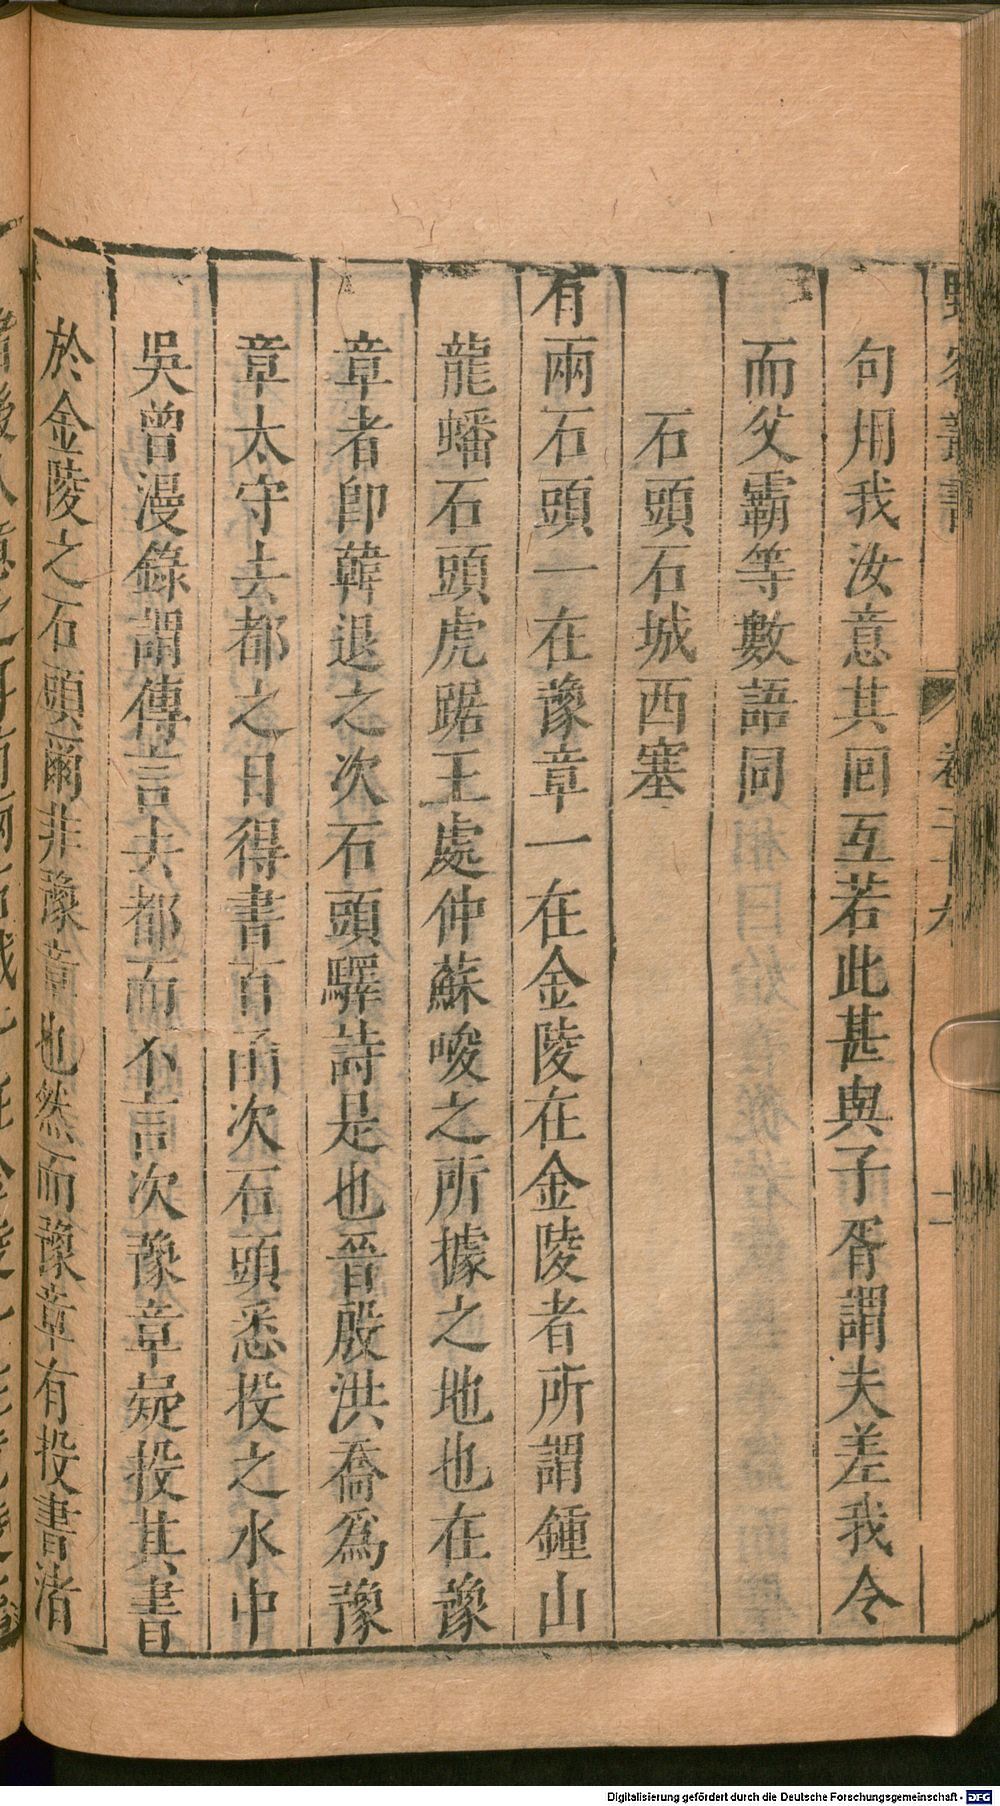 野客叢書 卷二十九 二
句用我汝意其回互若此甚與子胥謂夫差我令
而父霸等數語同
石頭石城西塞
有兩石頭一在豫章一在金陵在金陵者所謂鍾山
龍蟠石頭虎踞王處仲蘇峻之所據之地也在豫
章者卽韓退之次石頭驛詩是也晉殷洪喬爲豫
章太守去都之日得書百函次石頭悉投之水中
吳曾漫錄謂傳言去都而不言次豫章疑投其書
於金陵之石頭爾非豫章也然而豫章有投書渚
Digitalisierung gefördert durch die Deutsche Forschungsgemeinschaft - DFG